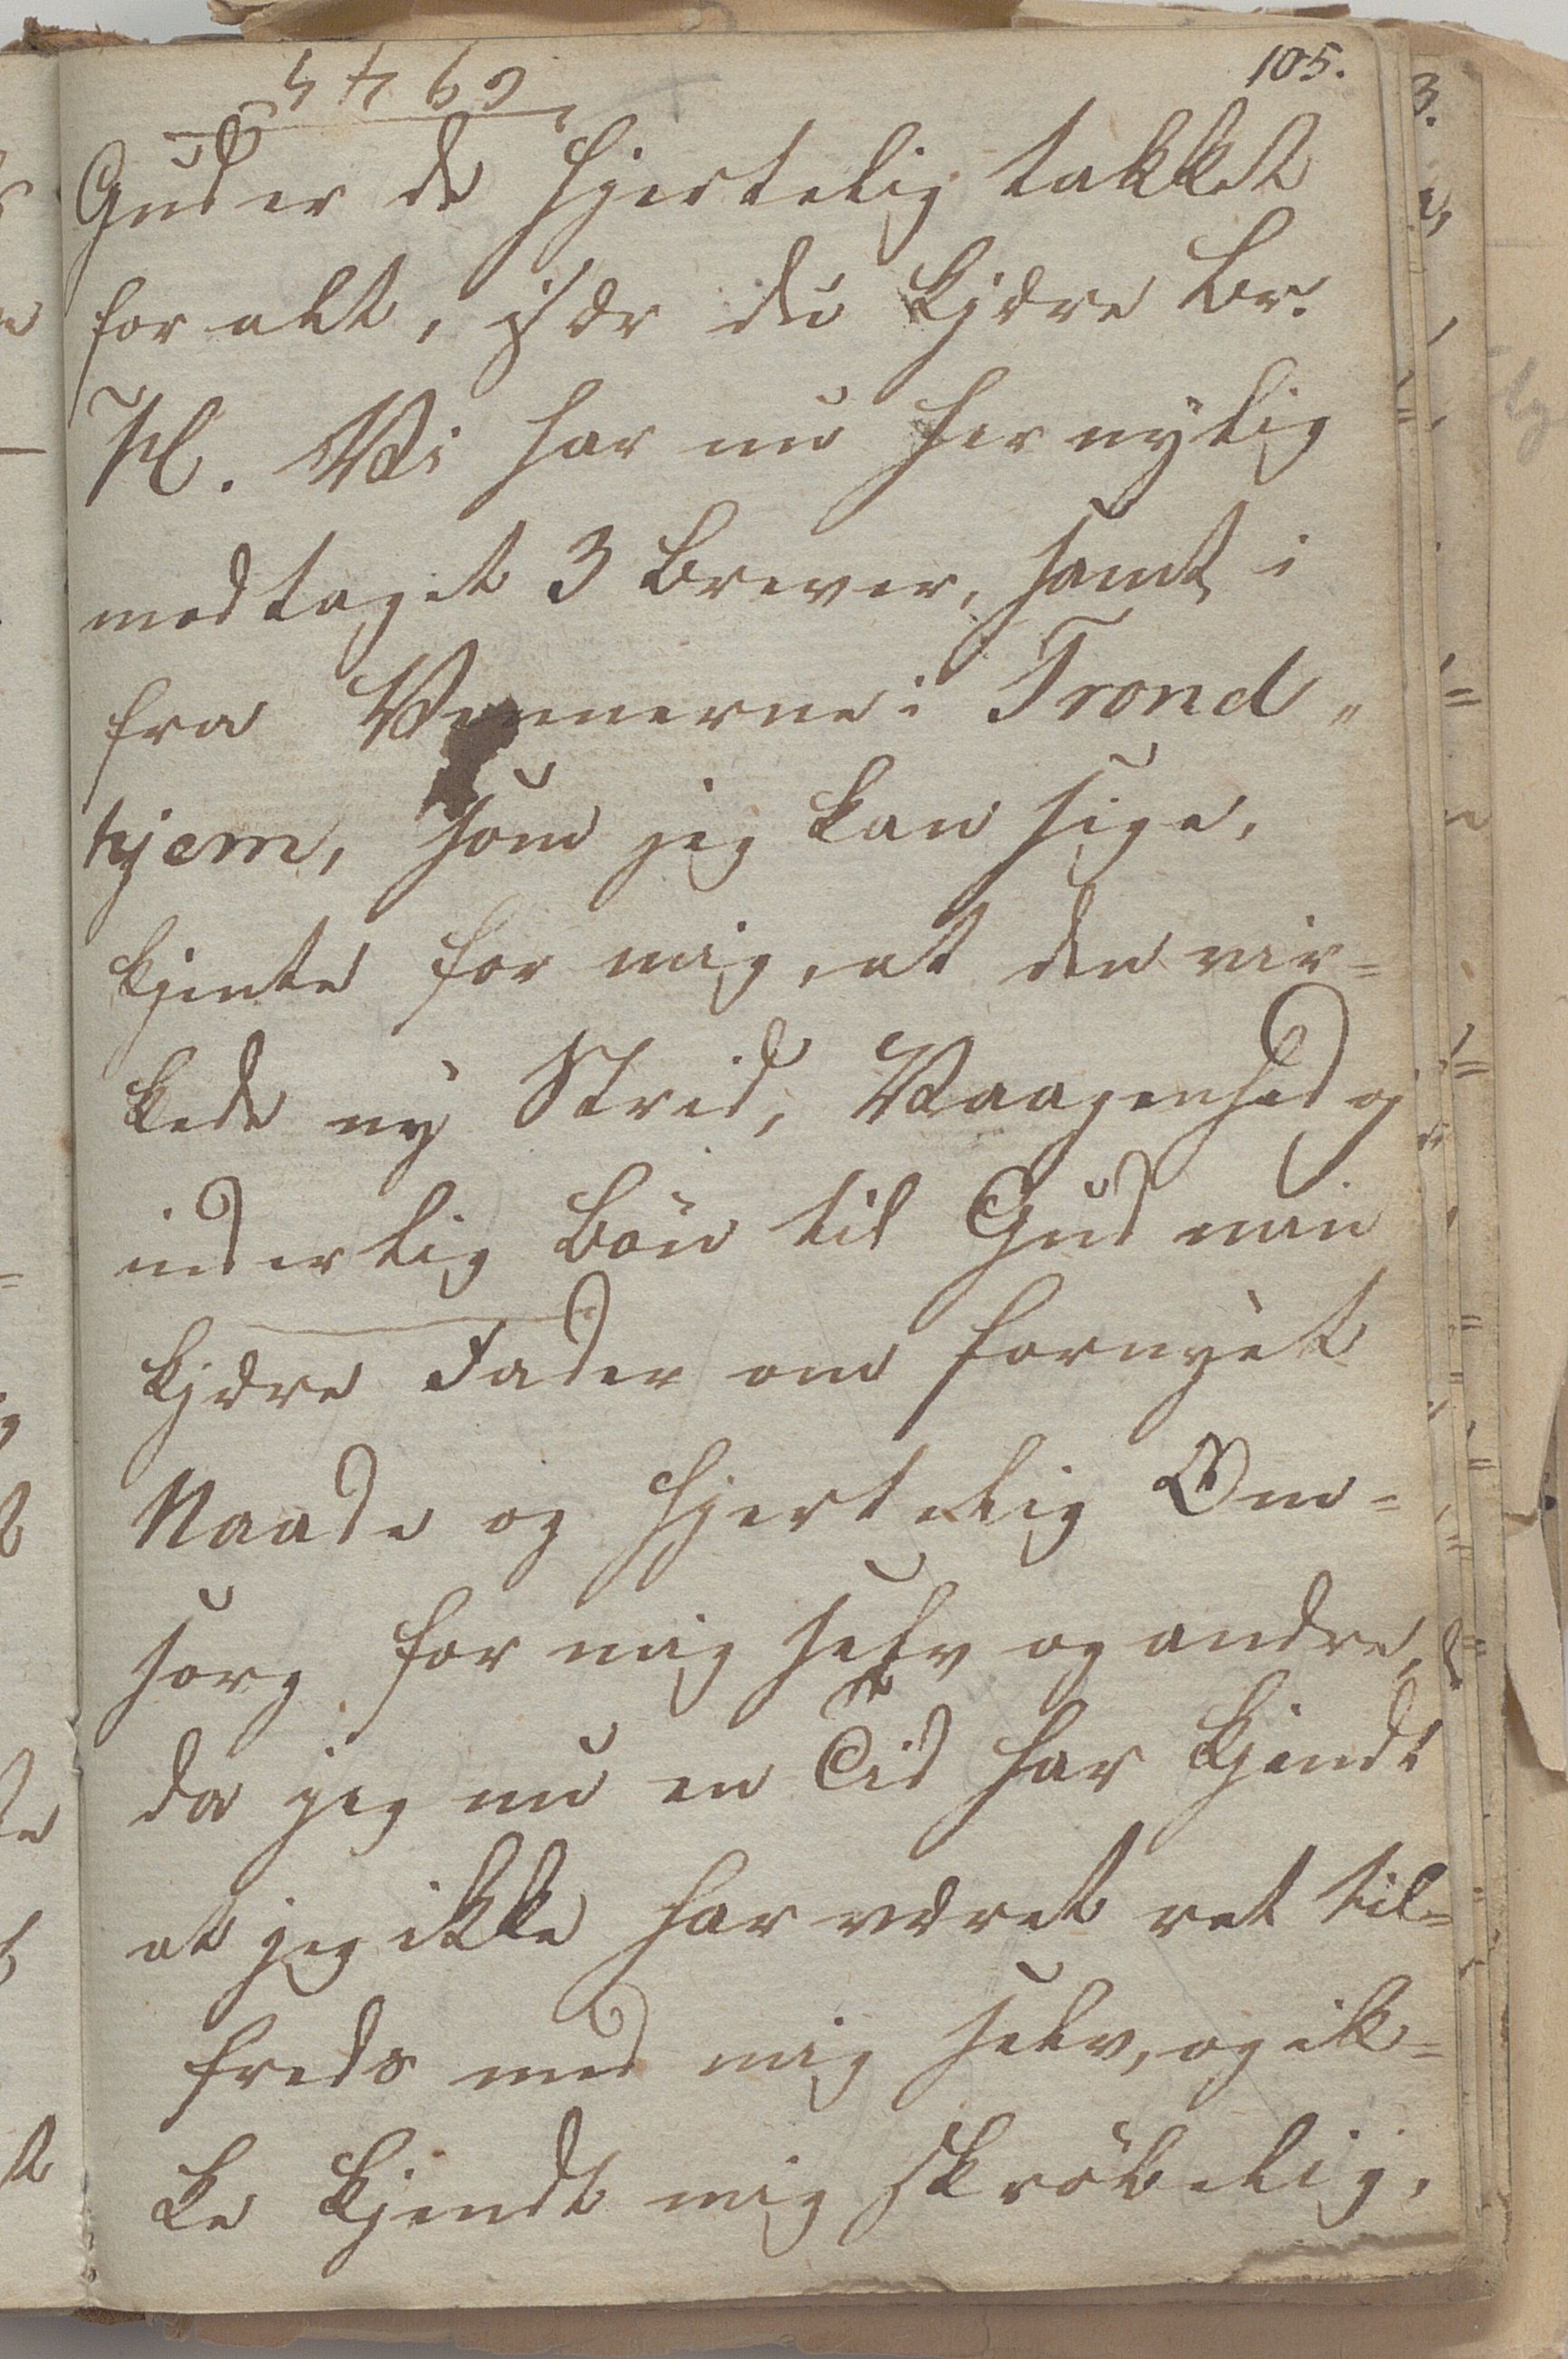 105.
Gud er de hjertelig takket
for alt, især du kjære Br.
Vi har nu her nylig
modtaget 3 Brever, samt i
fra Vennerne i Trond„
hjem, som jeg kan sige,
kjente for mig, at den vir=
kede ny Strid, Vaagenhed og
inderlig Bön til Gud min
kjære Fader om fornyet
Naade og hjertelig Om=
sorg for mig selv og andre,
da jeg nu en Tid har kjendt
at jeg ikke har været ret til=
freds med mig selv, og ik=
ke kjendt mig skröbelig,